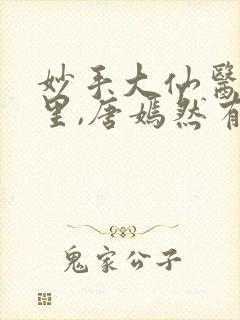 妙手大仙醫
里,唐嫣然有
鬼家公子